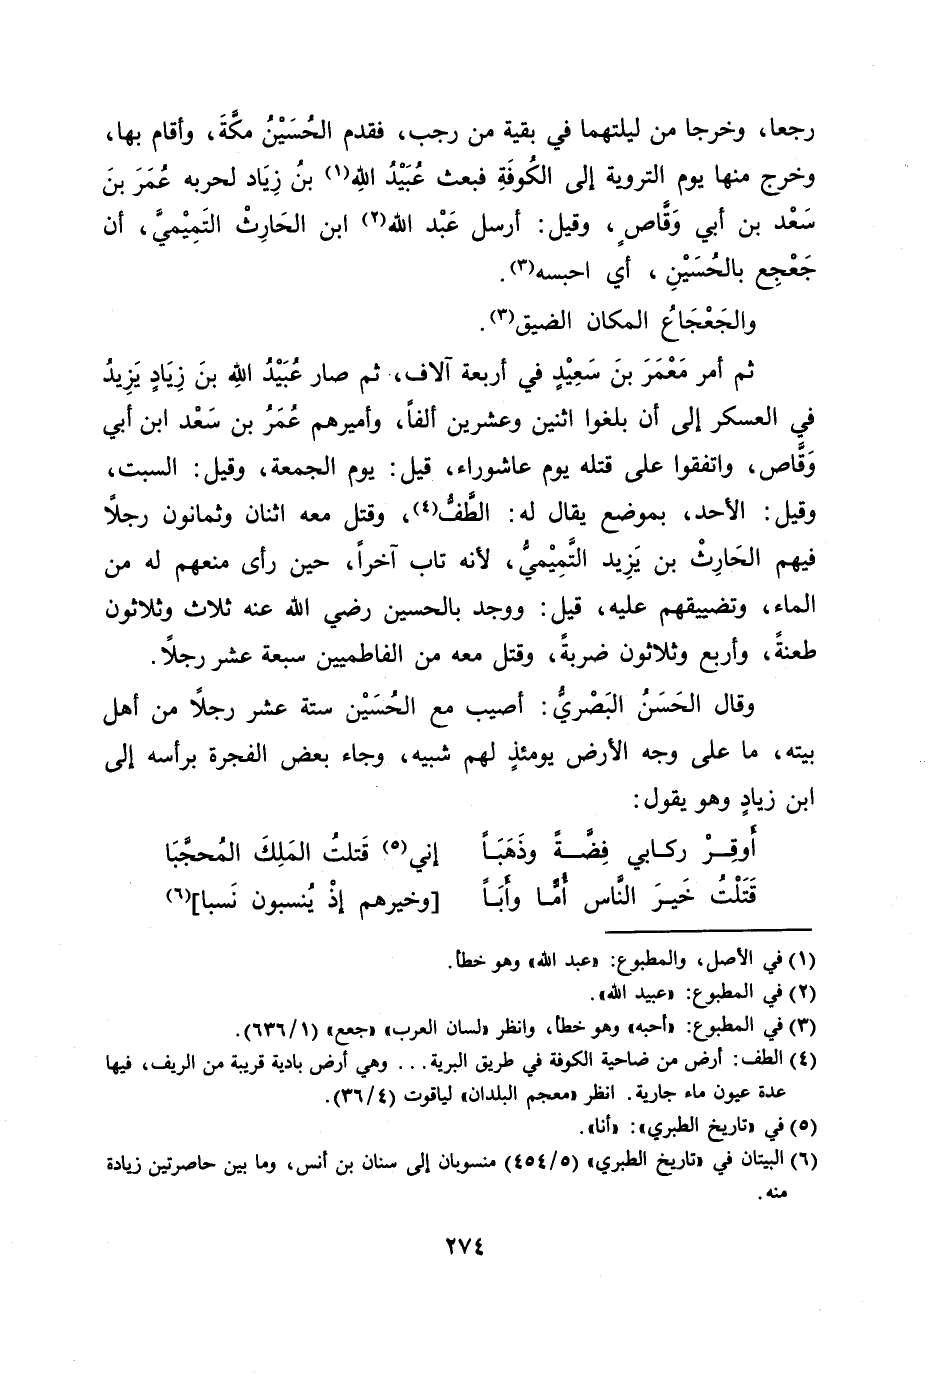 رجعا، وخرجا من ليلتهما في بقية من رجب، فقدم الحُسَيْنُ مكَّةَ، وأقام بها،
وخرج منها يوم التروية إلى الكُوفَةِ فبعث عُبَيْدُ اللهِ(١) بنُ زِيَاد لحربه عُمَرَ بنَ
سَعْد بن أبي وَقَّاصٍ، وقيل: أرسل عَبْد الله(٢) ابن الحَارِثْ التَمِيْميَّ، أن
جَعْجِع بالحُسَيْنِ، أي احبسه(٣).
والجَعْجَاعُ المكان الضيق(٣).
ثم أمر مَعْمَرَ بنَ سَعِيْدٍ في أربعة آلاف، ثم صار عُبَيْدُ اللهِ بنَ زِيَادٍ يَزِيدُ
في العسكر إلى أن بلغوا اثنين وعشرين ألفاً، وأميرهم عُمَرُ بن سَعْد ابن أبي
وَقَّاص، واتفقوا على قتله يوم عاشوراء، قيل: يوم الجمعة، وقيل: السبت،
وقيل: الأحد، بموضع يقال له: الطَّفُّ(٤)، وقتل معه اثنان وثمانون رجلًا
فيهم الحَارِثْ بن يَزِيد التَّمِيْميُّ، لأنه تاب آخراً، حين رأى منعهم له من
الماء، وتضييقهم عليه، قيل: ووجد بالحسين رضي الله عنه ثلاث وثلاثون
طعنةً، وأربع وثلاثون ضربةً، وقتل معه من الفاطميين سبعة عشر رجلًا.
وقال الحَسَنُ البَصْريُّ: أصيب مع الحُسَيْن ستة عشر رجلًا من أهل
بيته، ما على وجه الأرض يومئذٍ لهم شبيه، وجاء بعض الفجرة برأسه إلى
ابن زيادٍ وهو يقول:
أَوقِـرْ ركـابي فِضَّـةً وذَهَبَـاً إني(٥) قَتلتُ المَلِكَ المُحجَّبَا
قَتَلْتُ خَيـرَ النَّاس أُمَّا وأَبَـاً [وخيرهم إذْ يُنسبون نَسبا](٦)
(١) في الأصل، والمطبوع: «عبد الله» وهو خطأ.
(٢) في المطبوع: «عبيد الله».
(٣) في المطبوع: «أحبه» وهو خطأ، وانظر «لسان العرب» «جعع» (٦٣٦/١).
(٤) الطف: أرض من ضاحية الكوفة في طريق البرية... وهي أرض بادية قريبة من الريف، فيها
عدة عيون ماء جارية. انظر «معجم البلدان» لياقوت (٣٦/٤).
(٥) في «تاريخ الطبري»: «أنا».
(٦) البيتان في «تاريخ الطبري» (٤٥٤/٥) منسوبان إلى سنان بن أنس، وما بين حاصرتين زيادة
منه.
٢٧٤